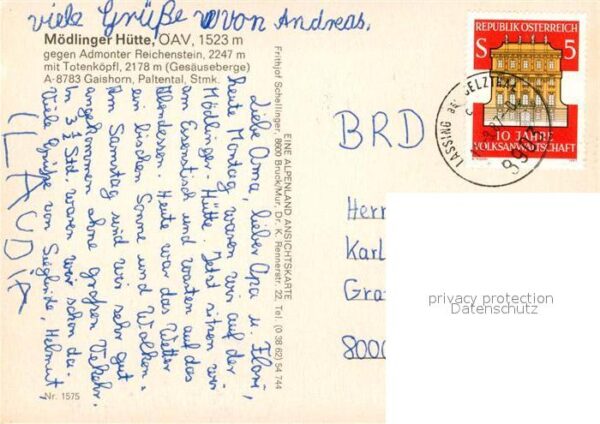 viele Grüße von Andreas.
Mödlinger Hütte, ÖAV, 1523 m
gegen Admonter Reichenstein, 2247 m
mit Totenköpfl, 2178 m (Gesäuseberge)
A-8783 Gaishorn, Paltental, Stmk.
Liebe Oma, lieber Opa u. Flori,
heute Montag waren wir auf der
Mödlinger-Hütte. Jetzt sitzen wir
am Eisenstisch und warten auf das
Abendessen. Heute war das Wetter
ein bischen Sonne und Wolken.
Am Samstag sind wir sehr gut
angekommen ohne großen Verkehr.
In 3 ½ Std. waren wir schon da.
Viele Grüße von Sieglinde, Helmut,
CLAUDIA
Nr. 1575
EINE ALPENLAND ANSICHTSKARTE
Frithjof Schellinger, 8600 Bruck/Mur, Dr. K. Rennerstr. 22, Tel. (0 38 62) 54 744
REPUBLIK ÖSTERREICH
S 5
10 JAHRE
VOLKSANWALTSCHAFT
LASSING BEI SELZTHAL
BRD
Herr
Karl
8000
privacy protection
Datenschutz